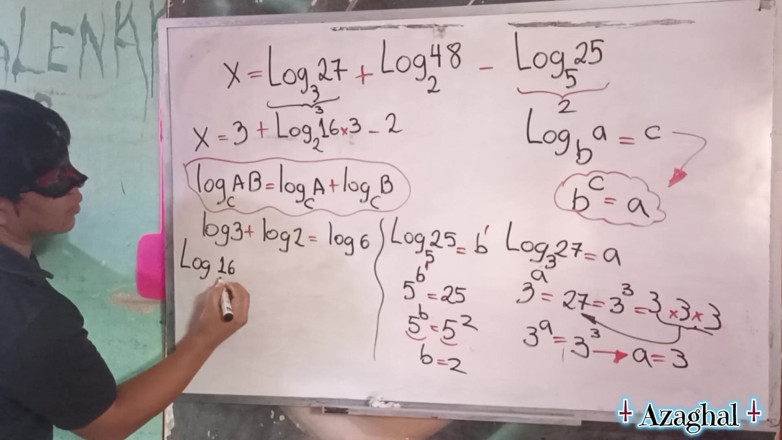 ALENKA
x = Log₃27 + Log₂48 − Log₅25
3
2
x = 3 + Log₂16×3 − 2
Log_b a = c
b^c = a
log_c AB = log_c A + log_c B
log3 + log2 = log6
Log 16
Log₅25 = b
5^b = 25
5^b = 5²
b = 2
Log₃27 = a
3^a = 27 = 3³ = 3×3×3
3^a = 3³ → a = 3
Azaghal